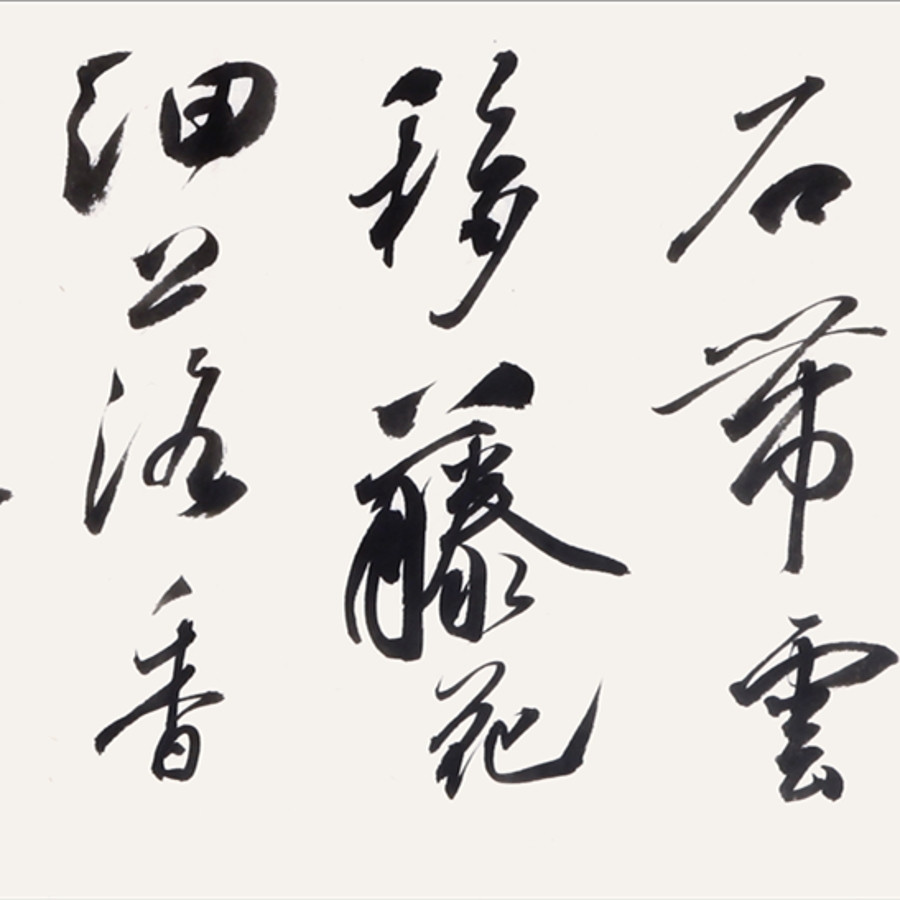 石帶雲
移藤花
細落香